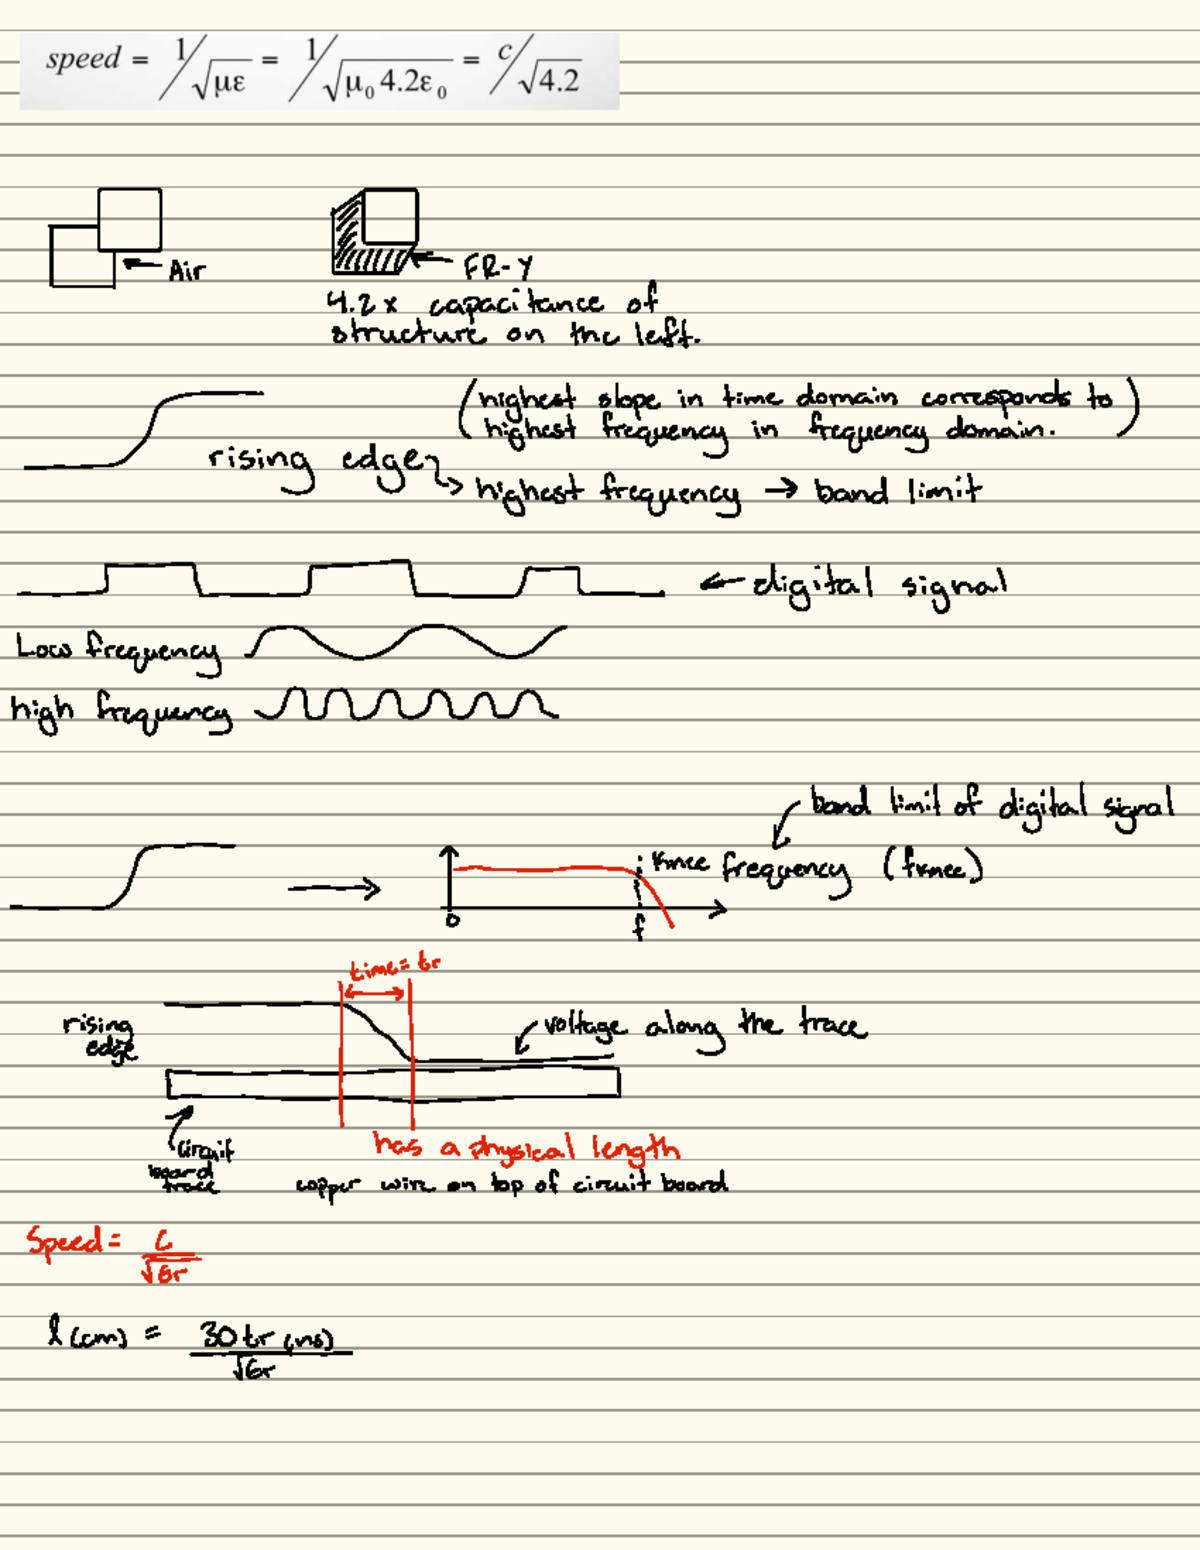 speed = 1/√με = 1/√μ₀4.2ε₀ = c/√4.2
Air
FR-4
4.2x capacitance of
structure on the left.
(highest slope in time domain corresponds to
highest frequency in frequency domain.)
rising edge
highest frequency → band limit
digital signal
Low frequency
high frequency
band limit of digital signal
knee frequency (fknee)
0
f
time = tr
rising
edge
voltage along the trace
circuit
board
trace
has a physical length
copper wire on top of circuit board
Speed = c/√εr
l(cm) = 30tr(ns)/√εr